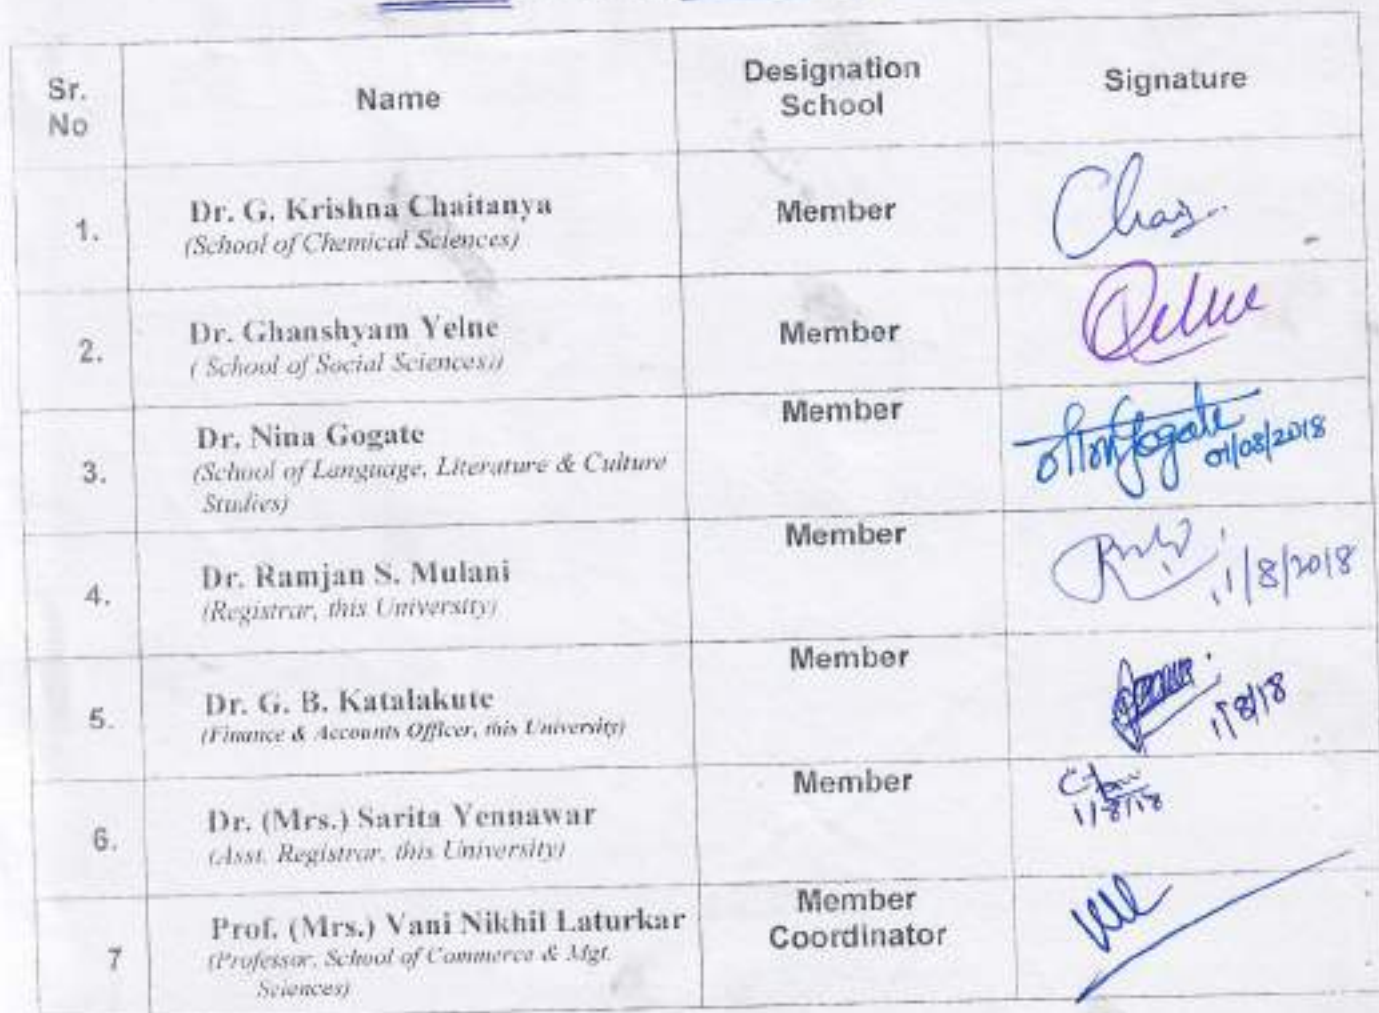 Sr. No
Name
Designation School
Signature
1.
Dr. G. Krishna Chaitanya
(School of Chemical Sciences)
Member
2.
Dr. Ghanshyam Yelne
( School of Social Sciences))
Member
3.
Dr. Nina Gogate
(School of Language, Literature & Culture
Studies)
Member
Gogate
01/08/2018
4.
Dr. Ramjan S. Mulani
(Registrar, this University)
Member
1/8/2018
5.
Dr. G. B. Katalakute
(Finance & Accounts Officer, this University)
Member
1/8/18
6.
Dr. (Mrs.) Sarita Yennawar
(Asst. Registrar, this University)
Member
1/8/18
7
Prof. (Mrs.) Vani Nikhil Laturkar
(Professor, School of Commerce & Mgt.
Sciences)
Member
Coordinator